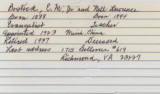 Bostick, E. M. Jr and Nell Lawrence
Born 1898 Born 1894
Evangelist Teacher
Appointed 1923 North China
Retired 1937 Deceased
Last address 1715 Bellevue #619
Richmond, VA 23227